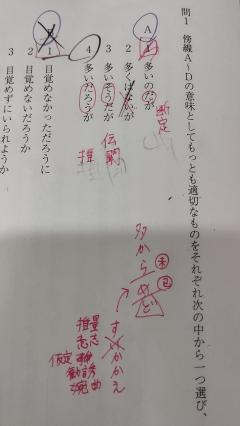 問1 傍線A~Dの意味としてもっとも適切なものをそれぞれ次の中から一つ選び、
A
1 多いのだが
断定
2 多くはないが
3 多いそうだが
伝聞
4 多いだろうが
推
B
1 目覚めなかっただろうに
2 目覚めないだろうか
3 目覚めずにいられようか
多からめど
未
已
すいかかえ
推量
意志
仮定
勧誘
婉曲